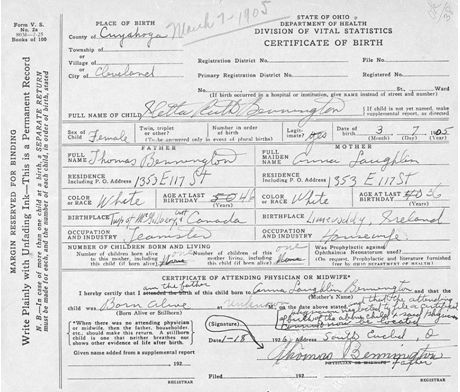 Form V. S.
No. 2a
Books of 100
MARGIN RESERVED FOR BINDING
Write Plainly with Unfading Ink—This is a Permanent Record
N. B.—In case of more than one child at a birth, a SEPARATE RETURN must be made for each, and the number of each child, in order of birth, stated
March 7-1905
STATE OF OHIO
DEPARTMENT OF HEALTH
DIVISION OF VITAL STATISTICS
CERTIFICATE OF BIRTH
PLACE OF BIRTH
County of Cuyahoga
Township of
or
Village of
or
City of Cleveland
Registration District No. File No.
Primary Registration District No. Registered No.
No. St., Ward
(If birth occurred in a hospital or institution, give name instead of street and number)
FULL NAME OF CHILD Ruth Bennington
(If child is not yet named, make supplemental report, as directed)
Sex of Child Female
Twin, triplet or other?
Number in order of birth
(To be answered only in event of plural births)
Legitimate? yes
Date of birth 3 7 1905
FATHER
MOTHER
FULL NAME Thomas Bennington
FULL MAIDEN NAME Anna Laughlin
RESIDENCE Including P. O. Address 1353 E 117 St
RESIDENCE Including P. O. Address 1353 E 117 St
COLOR OR RACE White
AGE AT LAST BIRTHDAY 46
COLOR OR RACE White
AGE AT LAST BIRTHDAY 36
BIRTHPLACE Canada
BIRTHPLACE Ireland
OCCUPATION AND INDUSTRY Teamster
OCCUPATION AND INDUSTRY Housewife
NUMBER OF CHILDREN BORN AND LIVING
Number of children born alive to this mother, including this child (if born alive)
Number of children of this mother living, including this child (if born alive)
Was Prophylactic against Ophthalmia Neonatorum used?
(On request, Prophylactic and literature furnished free by OHIO DEPARTMENT OF HEALTH)
CERTIFICATE OF ATTENDING PHYSICIAN OR MIDWIFE*
am the father
I hereby certify that I attended the birth of this child born to Anna Laughlin Bennington and that the
(Mother's Name)
child was Born Alive at on the date above stated
(Born Alive or Stillborn)
that the attending physician neglected to file a certificate of birth of the above child
*When there was no attending physician or midwife, then the father, householder, etc., should make this return. A stillborn child is one that neither breathes nor shows other evidence of life after birth.
(Signature)
Date 1-18 192 South Euclid, O
Thomas Bennington
Father
Given name added from a supplemental report
192
REGISTRAR
REGISTRAR